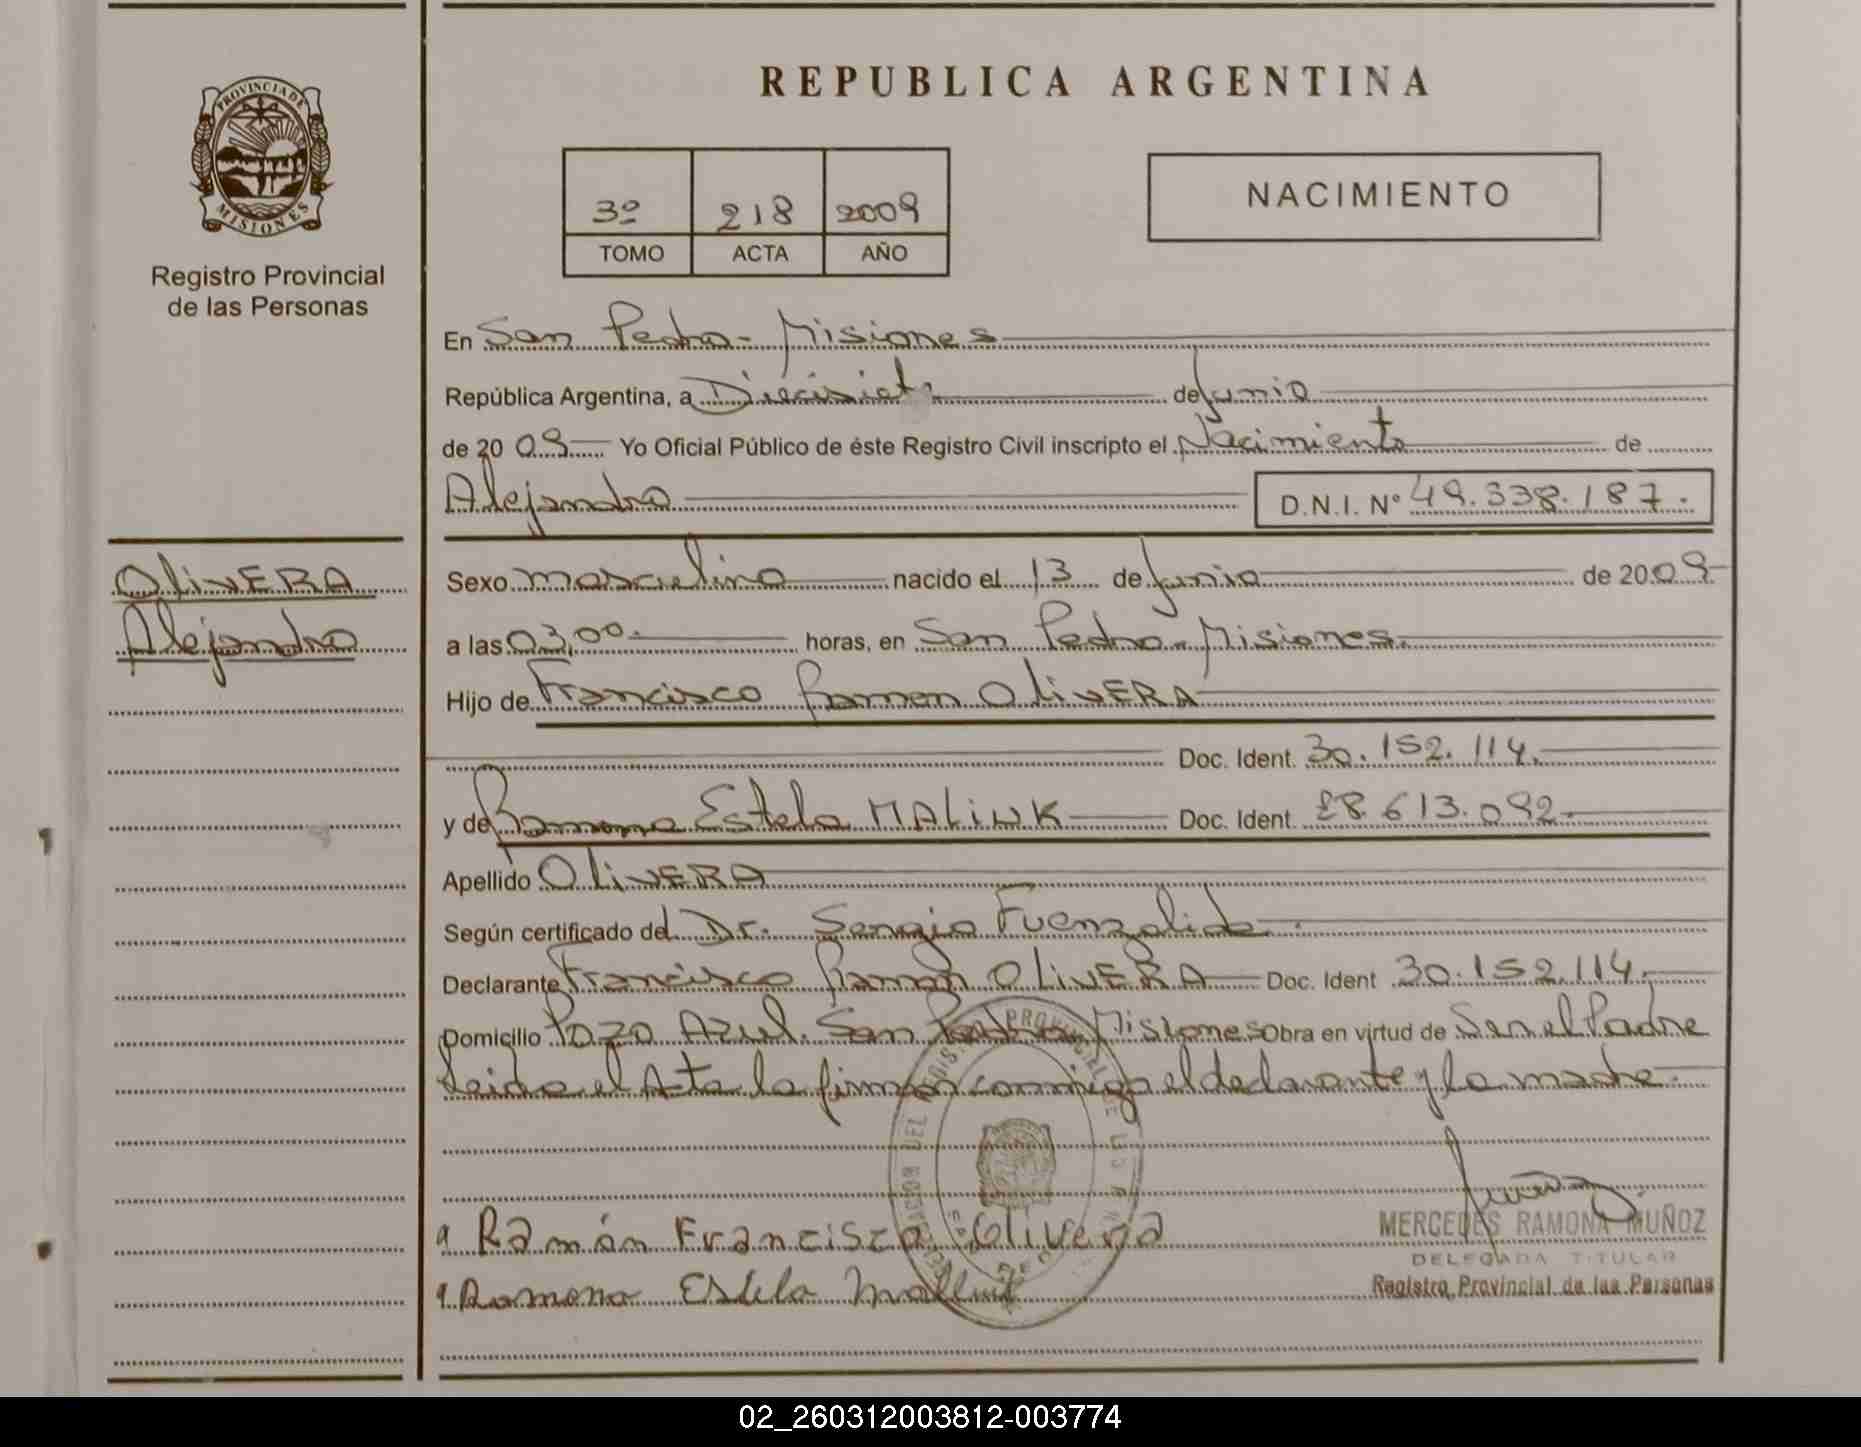 PROVINCIA DE
MISIONES
Registro Provincial
de las Personas
OLIVERA
Alejandro
REPUBLICA ARGENTINA
3º 218 2009
TOMO ACTA AÑO
NACIMIENTO
En San Pedro - Misiones
República Argentina, a Diecisiete de Junio
de 2009 Yo Oficial Público de éste Registro Civil inscripto el Nacimiento de
Alejandro D.N.I. Nº 49.338.187.
Sexo masculino nacido el 13 de Junio de 2009
a las 03,00. horas, en San Pedro - Misiones.
Hijo de Francisco Ramon OLIVERA
Doc. Ident. 30.152.114.
y de Ramona Estela MALINK Doc. Ident. 28.613.092.
Apellido OLIVERA
Según certificado del Dr. Sergio Fuenzalida.
Declarante Francisco Ramon OLIVERA Doc. Ident 30.152.114.
Domicilio Pozo Azul. San Pedro Misiones Obra en virtud de Ser el Padre
leida el Acta la firman conmigo el declarante y la madre.
Ramón Francisco Olivera
Ramona Estela
MERCEDES RAMONA MUÑOZ
DELEGADA TITULAR
Registro Provincial de las Personas
02_260312003812-003774